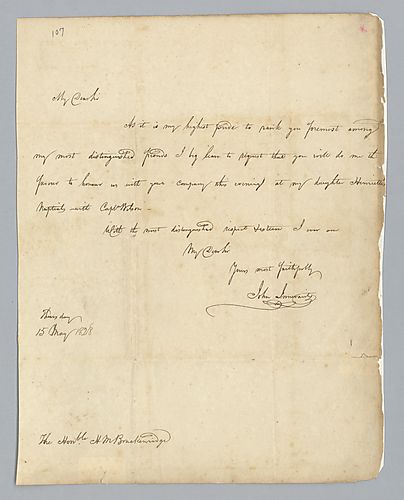 107
My Dear Sir
As it is my highest pride to rank you foremost among
my most distinguished friends I beg leave to request that you will do me the
favour to honour us with your company this evening at my daughter Henrietta
Nuptials with Capt Wilson -
With the most distinguished respect & esteem I am
My Dear Sir
Yours most faithfully
John Innerarity
Thursday
15 May 1828
The Honble. H M Brackenridge